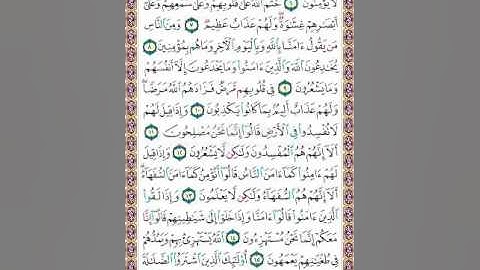 لَا يُؤْمِنُونَ ٦ خَتَمَ اللَّهُ عَلَىٰ قُلُوبِهِمْ وَعَلَىٰ سَمْعِهِمْ وَعَلَىٰ
أَبْصَارِهِمْ غِشَاوَةٌ وَلَهُمْ عَذَابٌ عَظِيمٌ ٧ وَمِنَ النَّاسِ
مَن يَقُولُ ءَامَنَّا بِاللَّهِ وَبِالْيَوْمِ الْآخِرِ وَمَا هُم بِمُؤْمِنِينَ ٨
يُخَادِعُونَ اللَّهَ وَالَّذِينَ ءَامَنُوا وَمَا يَخْدَعُونَ إِلَّا أَنفُسَهُمْ
وَمَا يَشْعُرُونَ ٩ فِي قُلُوبِهِم مَّرَضٌ فَزَادَهُمُ اللَّهُ مَرَضًا
وَلَهُمْ عَذَابٌ أَلِيمٌ بِمَا كَانُوا يَكْذِبُونَ ١٠ وَإِذَا قِيلَ لَهُمْ
لَا تُفْسِدُوا فِي الْأَرْضِ قَالُوا إِنَّمَا نَحْنُ مُصْلِحُونَ ١١
أَلَا إِنَّهُمْ هُمُ الْمُفْسِدُونَ وَلَٰكِن لَّا يَشْعُرُونَ ١٢ وَإِذَا قِيلَ
لَهُمْ ءَامِنُوا كَمَا ءَامَنَ النَّاسُ قَالُوا أَنُؤْمِنُ كَمَا ءَامَنَ السُّفَهَاءُ
أَلَا إِنَّهُمْ هُمُ السُّفَهَاءُ وَلَٰكِن لَّا يَعْلَمُونَ ١٣ وَإِذَا لَقُوا
الَّذِينَ ءَامَنُوا قَالُوا ءَامَنَّا وَإِذَا خَلَوْا إِلَىٰ شَيَاطِينِهِمْ قَالُوا إِنَّا
مَعَكُمْ إِنَّمَا نَحْنُ مُسْتَهْزِءُونَ ١٤ اللَّهُ يَسْتَهْزِئُ بِهِمْ وَيَمُدُّهُمْ
فِي طُغْيَانِهِمْ يَعْمَهُونَ ١٥ أُولَٰئِكَ الَّذِينَ اشْتَرَوُا الضَّلَالَةَ